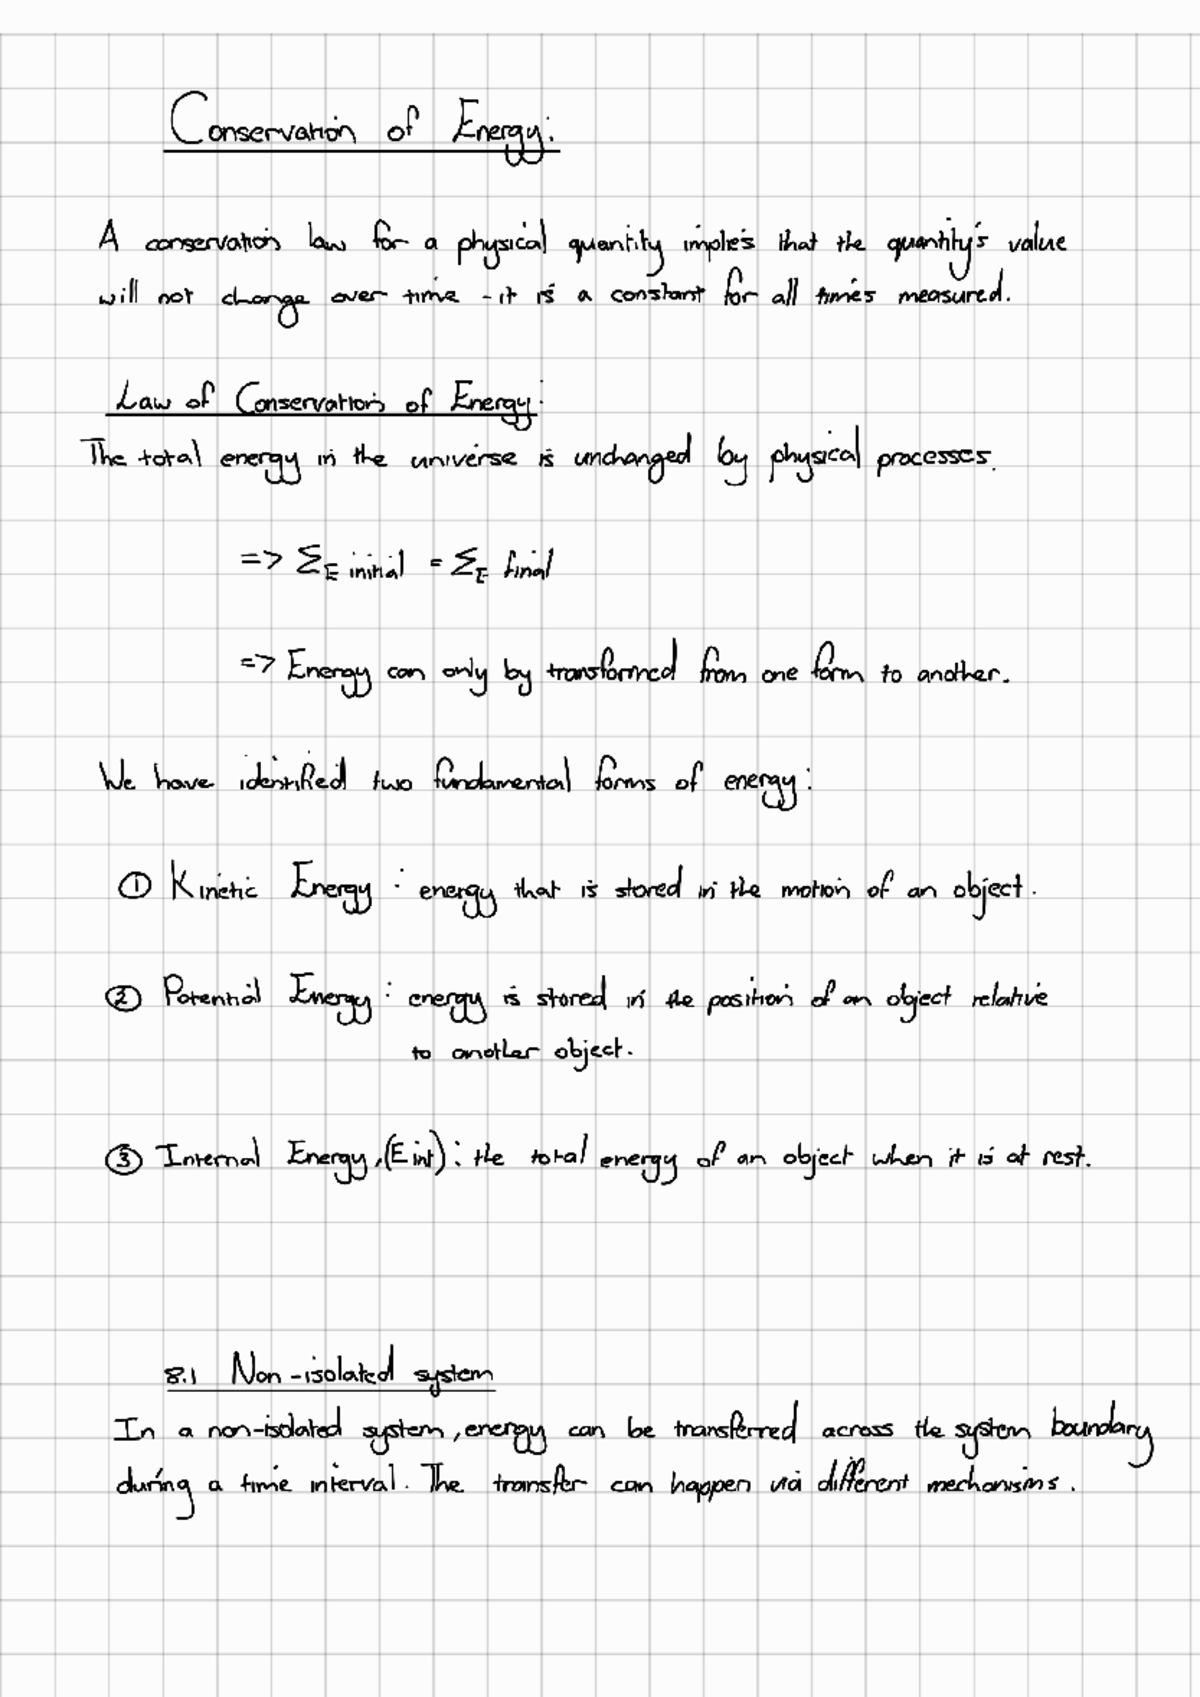 Conservation of Energy:
A conservation law for a physical quantity implies that the quantity's value
will not change over time - it is a constant for all times measured.
Law of Conservation of Energy:
The total energy in the universe is unchanged by physical processes.
=> Σ_E initial = Σ_E final
=> Energy can only by transformed from one form to another.
We have identified two fundamental forms of energy:
① Kinetic Energy: energy that is stored in the motion of an object.
② Potential Energy: energy is stored in the position of an object relative
to another object.
③ Internal Energy, (E int): the total energy of an object when it is at rest.
8.1 Non-isolated system
In a non-isolated system, energy can be transferred across the system boundary
during a time interval. The transfer can happen via different mechanisms.